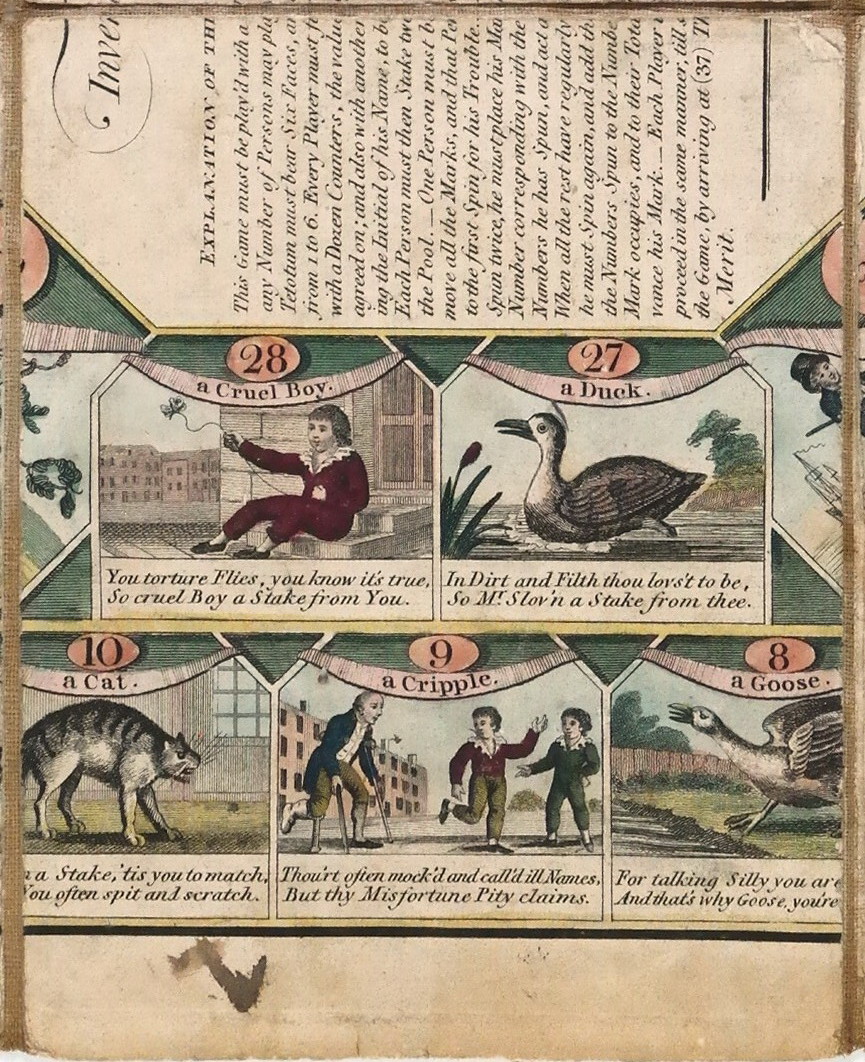 Inven
EXPLANATION OF TH
This Game must be play'd with a
any Number of Persons may pla
Tetotum must bear Six Faces, a
from 1 to 6. Every Player must
with a Dozen Counters, the value
agreed on; and also with another
ing the Initial of his Name, to b
Each Person must then Stake tw
the Pool. _ One Person must b
move all the Marks, and that Per
to the first Spin for his Trouble.
Spun twice, he must place his Ma
Number corresponding with the
Numbers he has Spun, and act a
When all the rest have regularly
he must Spin again, and add th
the Numbers Spun to the Numbe
Mark occupies, and to their Tota
vance his Mark. _ Each Player
proceed in the same manner, till s
the Game, by arriving at (37) Th
Merit.
28
a Cruel Boy.
You torture Flies, you know it's true,
So cruel Boy a Stake from You.
27
a Duck.
In Dirt and Filth thou lovs't to be,
So Mr. Slov'n a Stake from thee.
10
a Cat.
a Stake, 'tis you to match,
You often spit and scratch.
9
a Cripple.
Thou'rt often mock'd and call'd ill Names,
But thy Misfortune Pity claims.
8
a Goose.
For talking Silly you are
And that's why Goose, you're